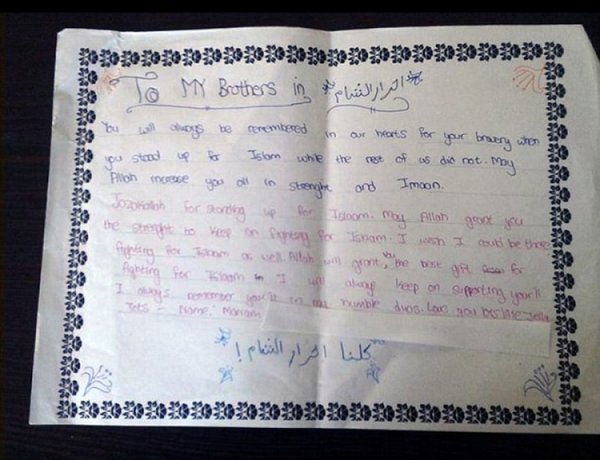 To MY Brothers in احرار الشام
You will always be remembered in our hearts for your bravery when
you stood up for Islam while the rest of us did not. May
Allah increase you all in strenght and Imaan.
Jazakallah for standing up for Islaam. May Allah grant you
the strenght to keep on fighting for Islaam. I wish I could be there
fighting for Islaam as well. Allah will grant you the best gift for
fighting for Islaam I will always keep on supporting your'll
I always remember your'll in my humble duas. Love you lots like Jelly
Tots - Name: Mariam
كلنا احرار الشام!